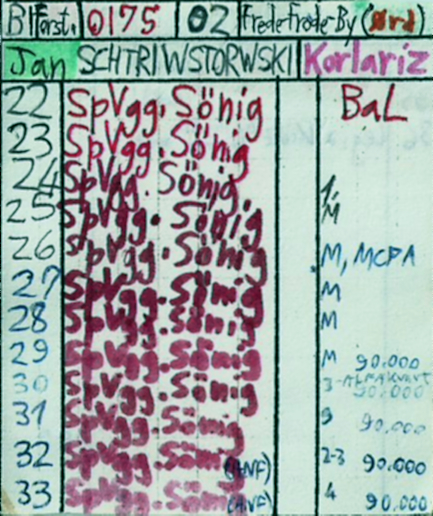 Bl Först. 0175 02 Frede Frøde-By (Ørd)
Jan SCHTRIWSTORWSKI Korlariz
22 SpVgg. Sönig BaL
23 SpVgg. Sönig
24 SpVgg. Sönig 1,
25 SpVgg. Sönig M
26 SpVgg. Sönig M, MCPA
27 SpVgg. Sönig M
28 SpVgg. Sönig M
29 SpVgg. Sönig M 90.000
30 SpVgg. Sönig 3 90.000
31 SpVgg. Sönig 9 90.000
32 SpVgg. Sönig 2-3 90.000
33 SpVgg. Sönig 4 90.000